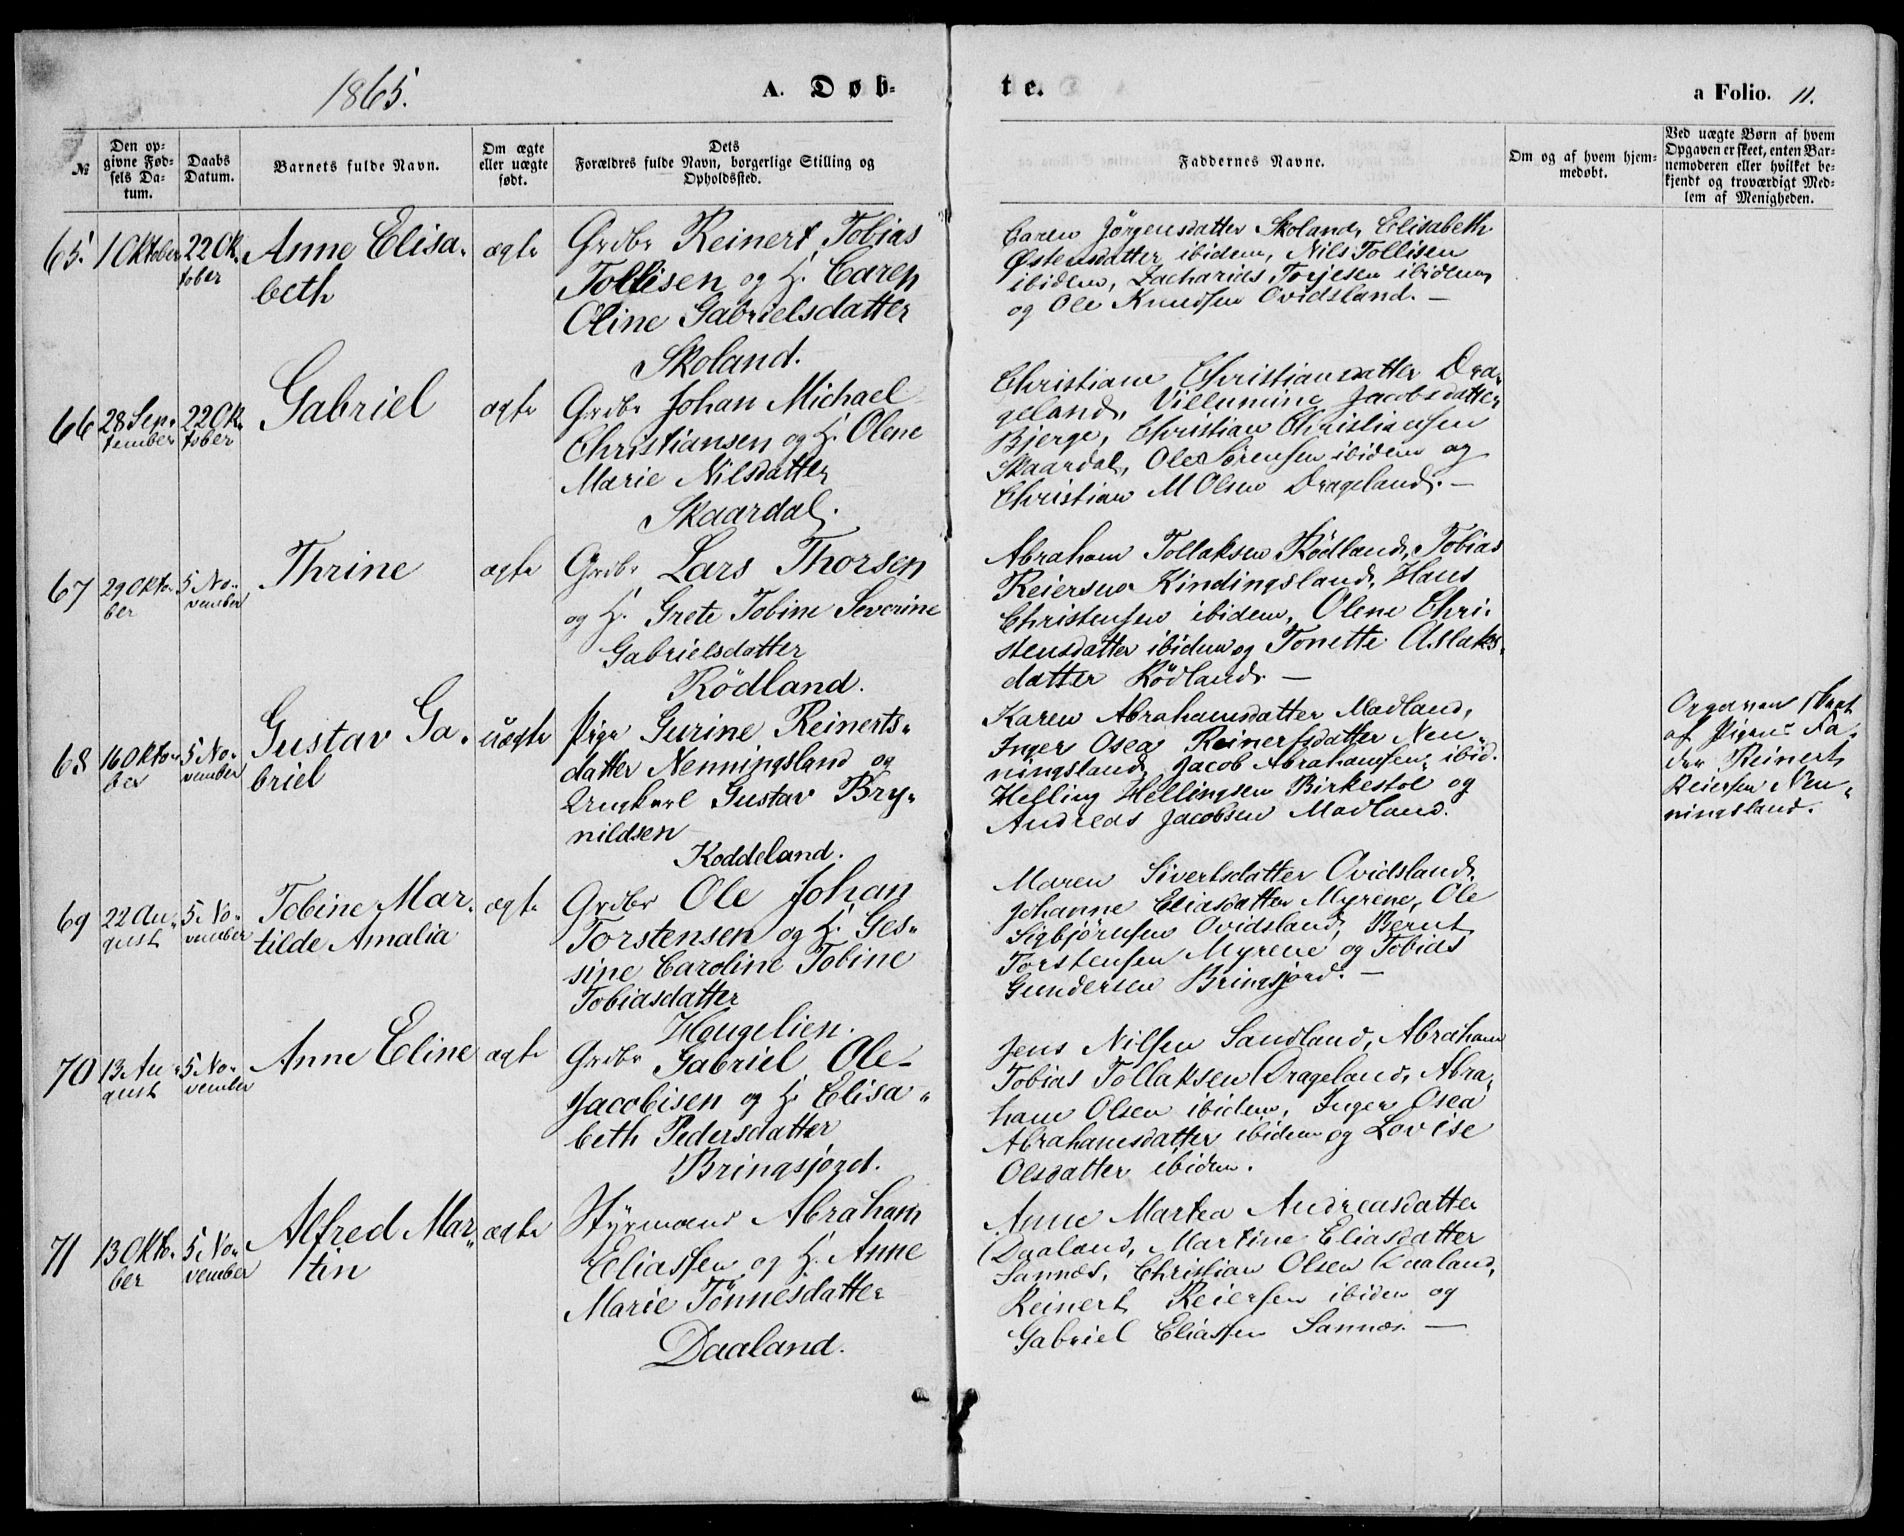 1865.
A. Døb-
te.
a Folio. 11.
№
Den op-
givne Fød-
sels Da-
tum.
Daabs
Datum.
Barnets fulde Navn.
Om ægte
eller uægte
født.
Dets
Forældres fulde Navn, borgerlige Stilling og
Opholdssted.
Faddernes Navne.
Om og af hvem hjem-
medøbt.
Ved uægte Børn af hvem
Opgaven er skeet, enten Bar-
nemoderen eller hvilket be-
kjendt og troværdigt Med-
lem af Menigheden.
65.
1 Oktober
22 Ok-
tober
Anne Elisa-
beth
ægte
Grdbr Reinert Tobias
Tollisen og H. Caren
Oline Gabrielsdatter
Skoland.
Caren Jörgensdatter Skoland, Elisabeth
Østensdatter ibidem, Nils Tollisen
ibidem, Zacharias Torjesen ibidem,
og Ole Knudsen Ovidsland. —
66
28 Sep-
tember
22 Ok-
tober
Gabriel
ægte
Grdbr Johan Michael
Christiansen og H. Olene
Marie Nilsdatter
Skaardal.
Christiane Christiansdatter Dra-
geland, Villumine Jacobsdatter
Bjerge, Christian Christiansen
Skaardal, Ole Sörensen ibidem og
Christian M Olsen Drageland. —
67
29 Okto-
ber
5 No-
vember
Thrine
ægte
Grdbr Lars Thorsen
og H. Grete Tobine Severine
Gabrielsdatter
Rödland.
Abraham Tollaksen Rödland, Tobias
Reiersen Kindingsland, Hans
Christensen ibidem, Olene Chri-
stensdatter ibidem og Tonette Aslaks-
datter Rödland. —
68
16 Okto-
ber
5 No-
vember
Gustav Ga-
briel
uægte
Pige Gurine Reinerts-
datter Nenningsland og
Ungkarl Gustav Bry-
nildsen
Koddeland.
Karen Abrahamsdatter Madland,
Inger Osea Reinertsdatter Nen-
ningsland, Jacob Abrahamsen ibid.
Helling Hellingsen Birkestöl og
Andreas Jacobsen Madland.
Opgaven skeet
af Pigens Fa-
der Reinert
Reiersen Nen-
ningsland.
69
22 Au-
gust
5 No-
vember
Tobine Mar-
tilde Amalia
ægte
Grdbr Ole Johan
Torstensen og H. Ges-
sine Caroline Tobine
Tobiasdatter
Hougelien.
Maren Sivertsdatter Ovidsland,
Johanne Eliasdatter Myrene, Ole
Sigbjörnsen Ovidsland, Bernt
Torstensen Myrene og Tobias
Gundersen Bringsjord. —
70
13 Au-
gust
5 No-
vember
Anne Eline
ægte
Grdbr Gabriel Ole-
Jacobisen og H. Elisa-
beth Pedersdatter
Bringsjord.
Jens Nilsen Sandland, Abraham
Tobias Tollaksen Drageland, Abra-
ham Olsen ibidem, Inger Osea
Abrahamsdatter ibidem og Lovise
Olsdatter ibidem.
71
13 Okto-
ber
5 No-
vember
Alfred Mar-
tin
ægte
Styrmand Abraham
Eliassen og H. Anne
Marie Tönnesdatter
Daaland.
Anne Martea Andreasdatter
Daaland, Martine Eliasdatter
Sannæs, Christian Olsen Daaland,
Reinert Reiersen ibidem og
Gabriel Eliassen Sannæs. —